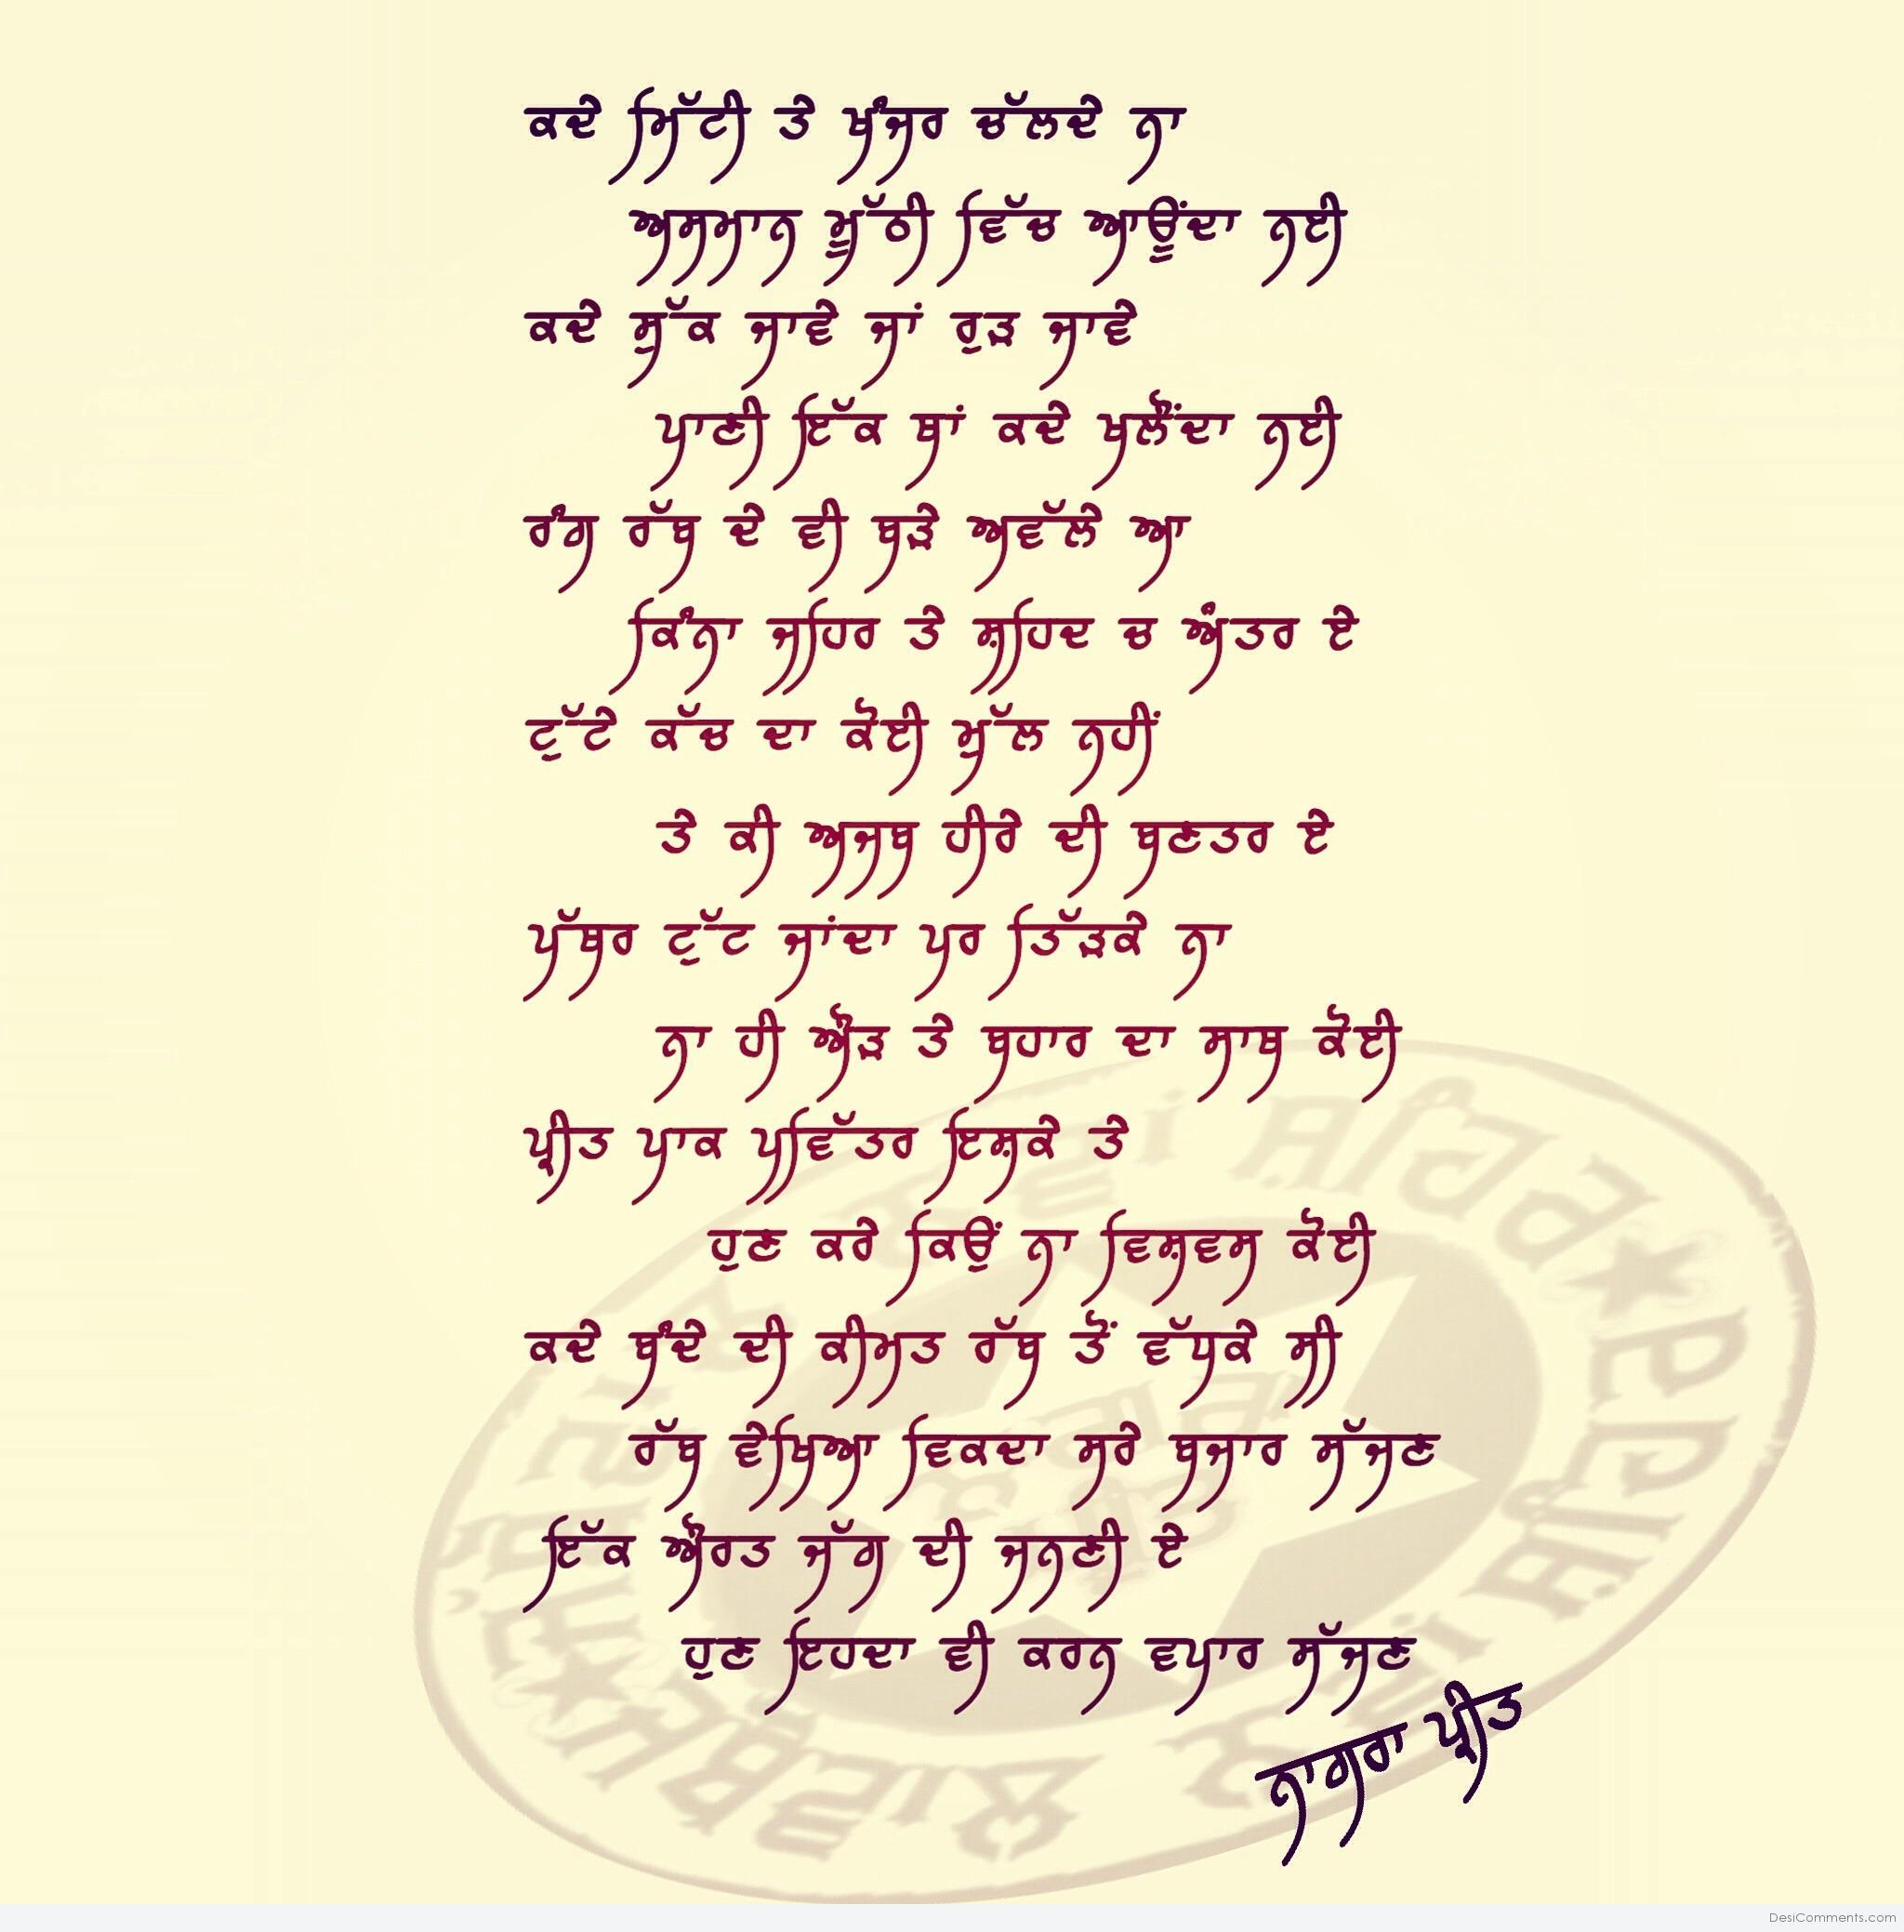 ਕਦੇ ਮਿੱਟੀ ਤੇ ਖੰਜਰ ਚੱਲਦੇ ਨਾ
ਅਸਮਾਨ ਮੂੱਠੀ ਵਿੱਚ ਆਊਂਦਾ ਨਈ
ਕਦੇ ਸੁੱਕ ਜਾਵੇ ਜਾਂ ਰੁੜ ਜਾਵੇ
ਪਾਣੀ ਇੱਕ ਥਾਂ ਕਦੇ ਖਲੌਂਦਾ ਨਈ
ਰੰਗ ਰੱਬ ਦੇ ਵੀ ਬੜੇ ਅਵੱਲੇ ਆ
ਕਿੰਨਾ ਜਹਿਰ ਤੇ ਸ਼ਹਿਦ ਚ ਅੰਤਰ ਏ
ਟੁੱਟੇ ਕੱਚ ਦਾ ਕੋਈ ਮੁੱਲ ਨਹੀਂ
ਤੇ ਕੀ ਅਜਬ ਹੀਰੇ ਦੀ ਬਣਤਰ ਏ
ਪੱਥਰ ਟੁੱਟ ਜਾਂਦਾ ਪਰ ਤਿੱੜਕੇ ਨਾ
ਨਾ ਹੀ ਔੜ ਤੇ ਬਹਾਰ ਦਾ ਸਾਥ ਕੋਈ
ਪ੍ਰੀਤ ਪਾਕ ਪਵਿੱਤਰ ਇਸ਼ਕੇ ਤੇ
ਹੁਣ ਕਰੇ ਕਿਉਂ ਨਾ ਵਿਸ਼ਵਸ ਕੋਈ
ਕਦੇ ਬੰਦੇ ਦੀ ਕੀਮਤ ਰੱਬ ਤੋਂ ਵੱਧਕੇ ਸੀ
ਰੱਬ ਵੇਖਿਆ ਵਿਕਦਾ ਸਰੇ ਬਜਾਰ ਸੱਜਣ
ਇੱਕ ਔਰਤ ਜੱਗ ਦੀ ਜਨਣੀ ਏ
ਹੁਣ ਇਹਦਾ ਵੀ ਕਰਨ ਵਪਾਰ ਸੱਜਣ
ਨਾਗਰਾ ਪ੍ਰੀਤ
ਨਵਾਂ ਸ਼ਹਿਰ
ਨਵਾਂ ਸ਼ਹਿਰ
ਨਾਗਰਾ
ਪ੍ਰੀਤ
DesiComments.com